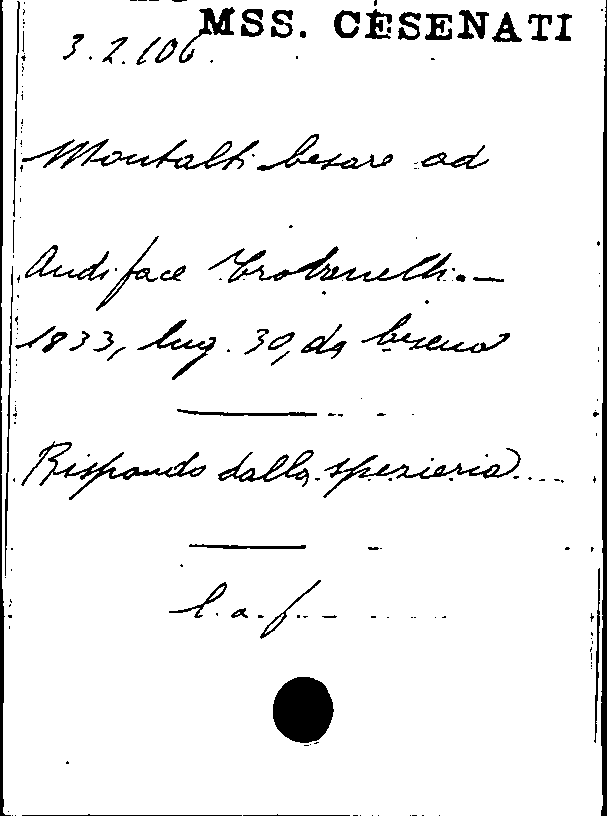 MSS. CESENATI
3.2.106.
Montalti Cesare ad
Audiface —
1833, lug. 30, da Cesena
Rispondo dalla spezieria....
l. a. f.